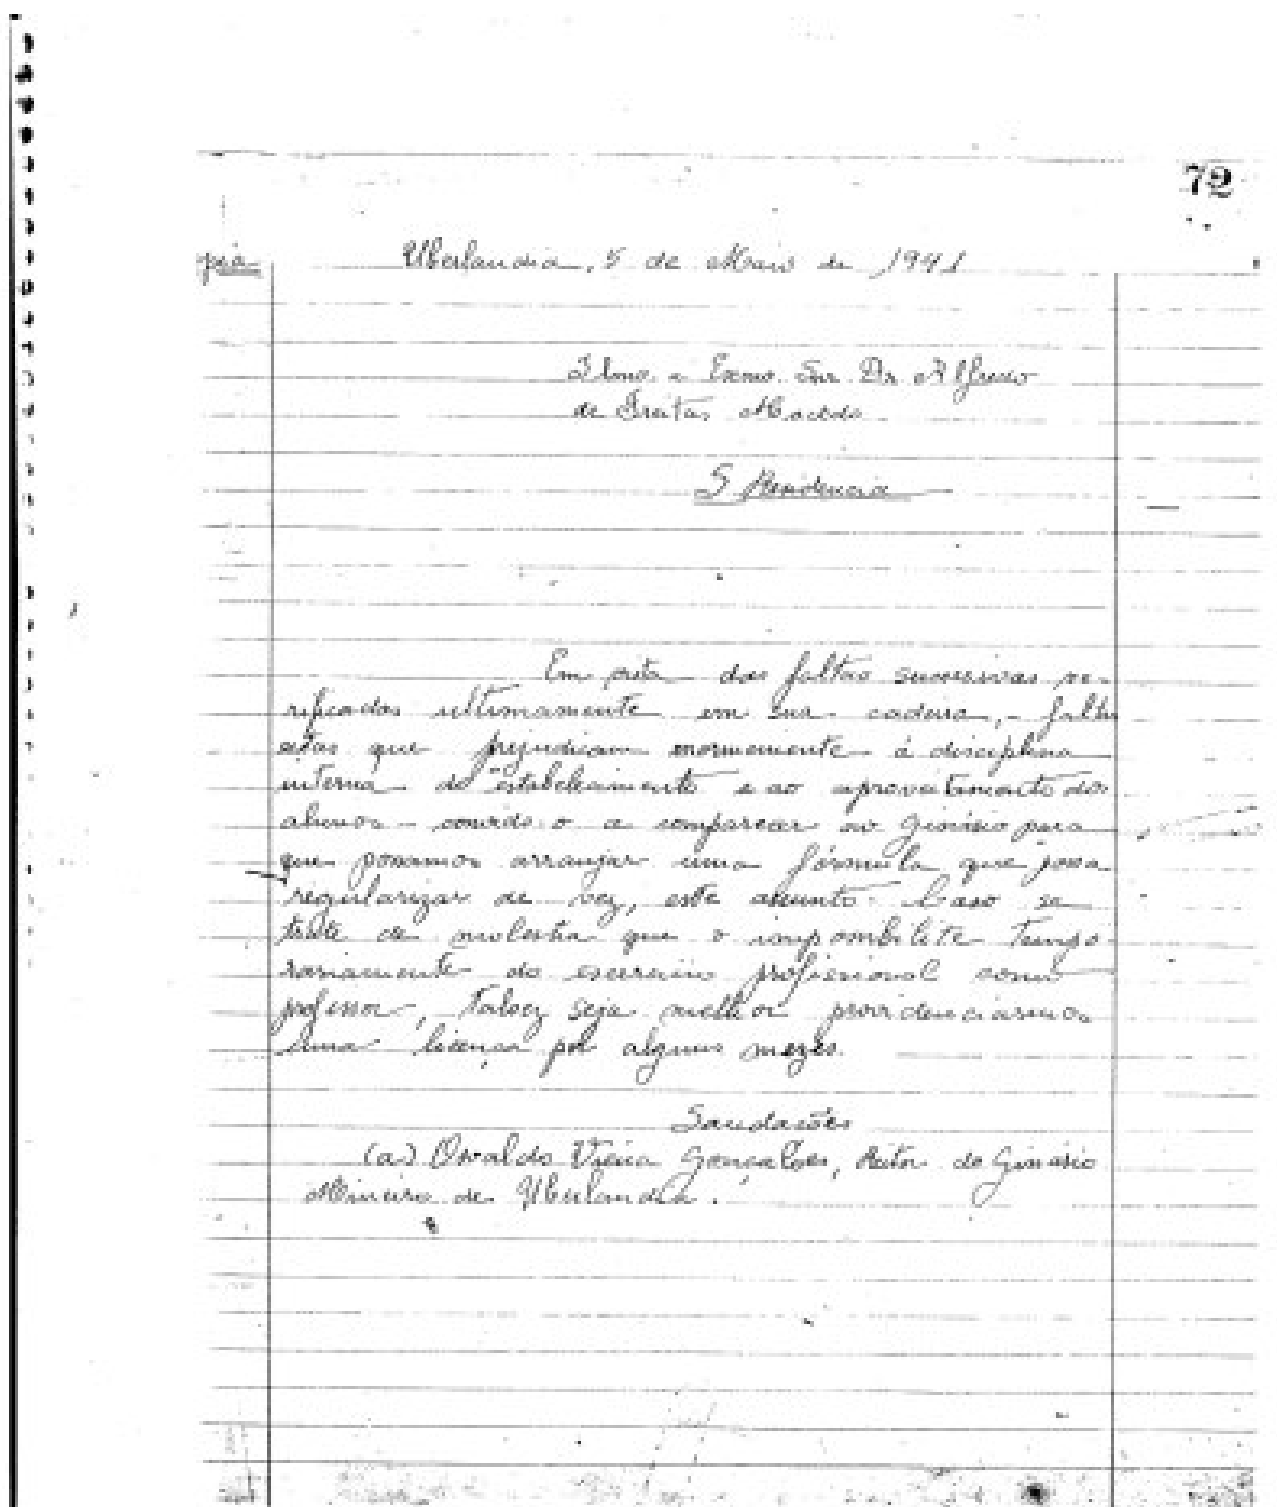 72
pia Uberlandia, 5 de Maio de 1941
Ilmo. e Exmo. Snr. Dr. Alfredo
de Freitas Macedo
S/ Residencia
Em vista das faltas sucessivas ve-
rificadas ultimamente em sua cadeira, - faltas
estas que prejudicam enormemente á disciplina
interna do estabelecimento e ao aproveitamento dos
alunos - convido-o a comparecer ao Ginásio para
que possamos arranjar uma fórmula que possa
regularizar de vez, este assunto. Caso se
trate de molestia que o impossibilite tempo-
rariamente do exercicio profissional como
professor, talvez seja melhor providenciarmos
uma licença por alguns mezes.
Saudações
(a) Osvaldo Vieira Gonçalves, Reitor do Ginásio
Mineiro de Uberlandia.